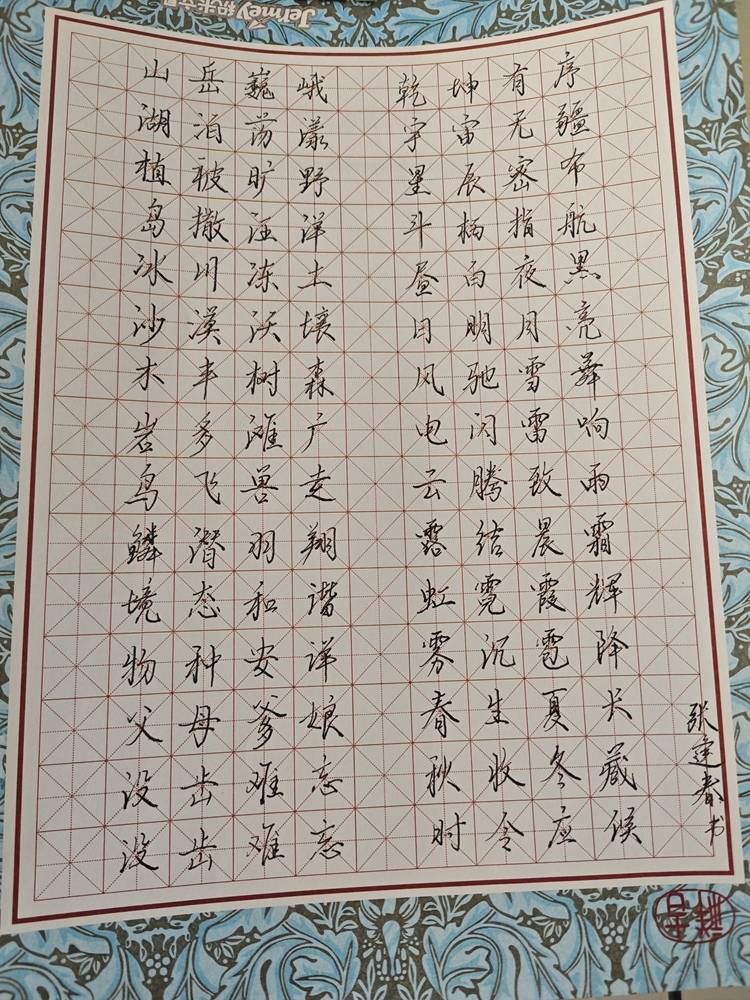 乾坤有序
宇宙无疆
星辰密布
斗柄指航
昼白夜黑
日明月亮
风驰雪舞
电闪雷响
云腾致雨
露结晨霜
虹霓霞辉
雾沉雹降
春生夏长
秋收冬藏
时令应候
山岳巍峨
湖泊荡漾
植被旷野
岛撒汪洋
冰川冻土
沙漠沃壤
木丰树森
岩多滩广
鸟飞兽走
鳞潜羽翔
境态和谐
物种安详
父母爹娘
没齿难忘
没齿难忘
张建春书